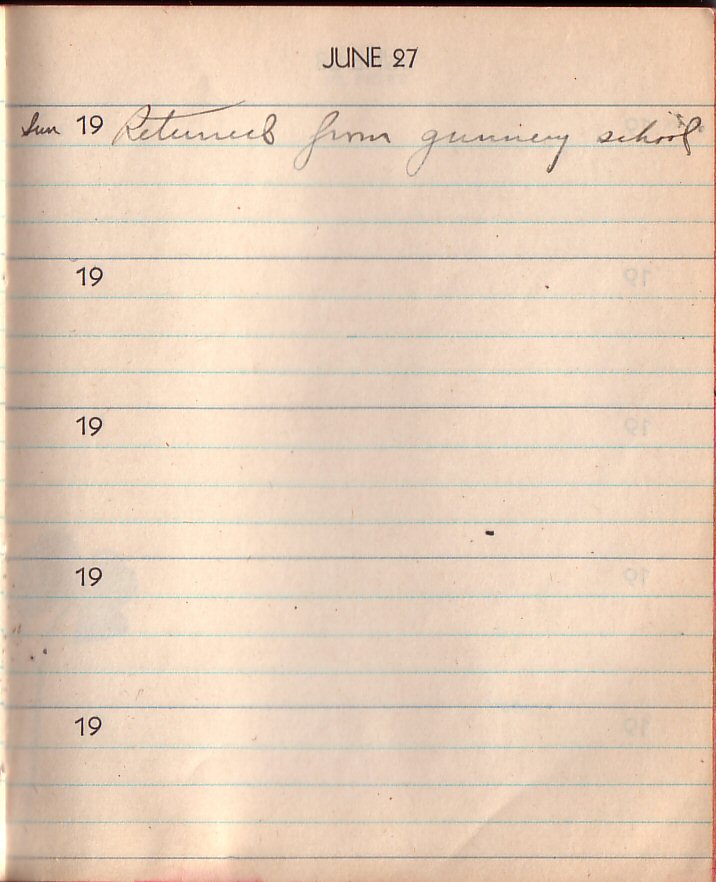 JUNE 27
Sun 19 Returned from gunnery school
19
19
19
19